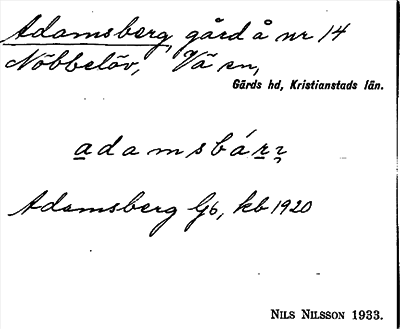 Adamsberg, gård å nr 14
Nöbbelöv, Vä sn,
Gärds hd, Kristianstads län.
adamsbár
Adamsberg Gb, kb 1920
NILS NILSSON 1933.